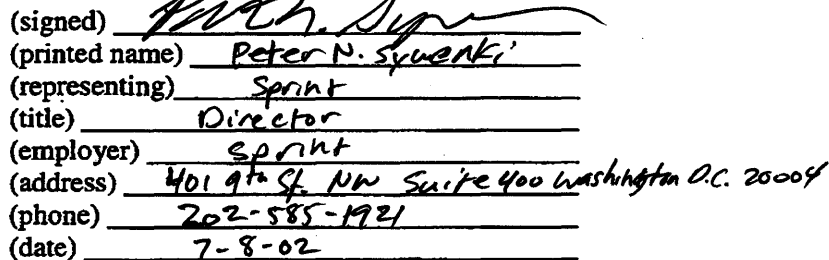 (signed)
(printed name) Peter N. Sywenki
(representing) Sprint
(title) Director
(employer) Sprint
(address) 401 9th St. NW Suite 400 Washington D.C. 20004
(phone) 202-585-1921
(date) 7-8-02